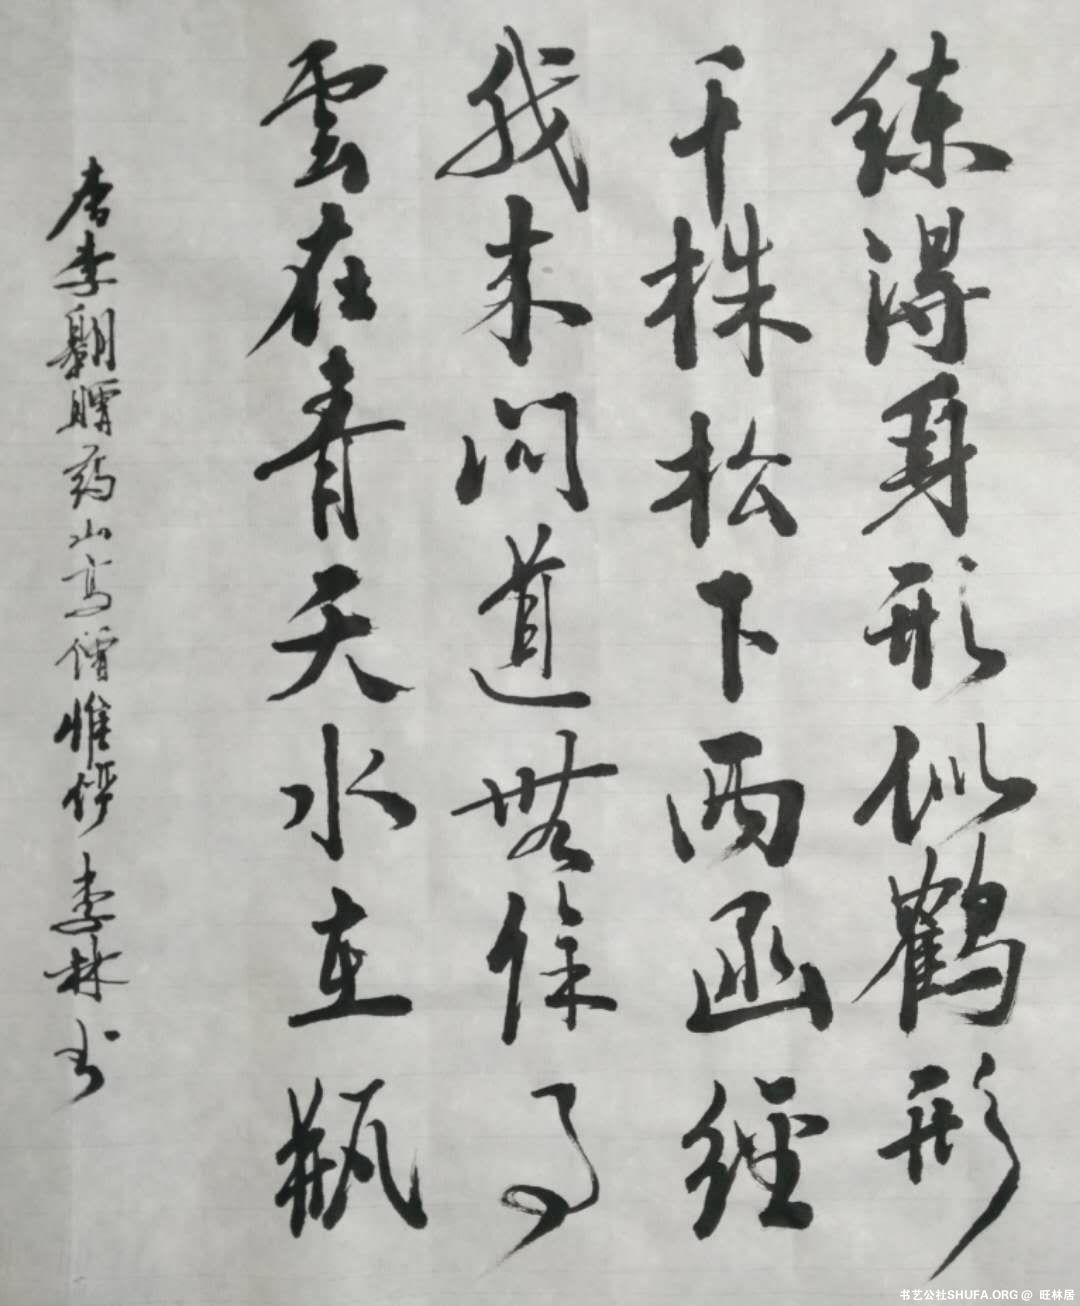 练得身形似鹤形
千株松下两函经
我来问道无馀事
云在青天水在瓶
唐李翱赠药山高僧惟俨 李林书
书艺公社SHUFA.ORG @ 旺林居